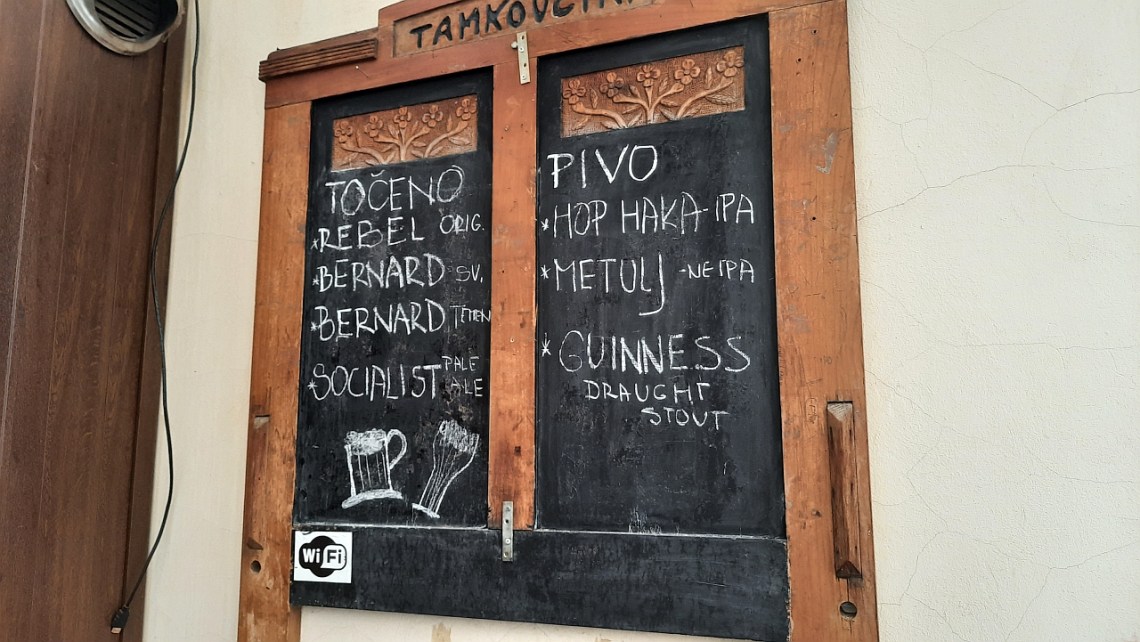 TOČENO
*REBEL ORIG.
*BERNARD SV.
*BERNARD TEMEN
*SOCIALIST PALE ALE
PIVO
*HOP HAKA-IPA
*METULJ -NEIPA
*GUINNESS
DRAUGHT
STOUT
WiFi